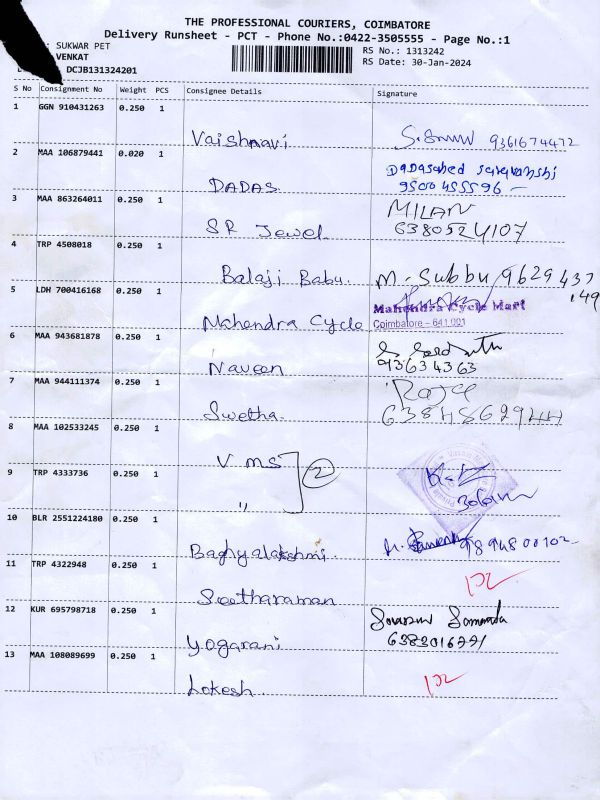 THE PROFESSIONAL COURIERS, COIMBATORE
Delivery Runsheet - PCT - Phone No.:0422-3505555 - Page No.:1
: SUKWAR PET
RS No.: 1313242
VENKAT
RS Date: 30-Jan-2024
DCJB131324201
S No Consignment No Weight PCS Consignee Details Signature
1 GGN 910431263 0.250 1
Vaishnavi 9361674472
2 MAA 106879441 0.020 1
DADAS Dadasahed
9500455596
3 MAA 863264011 0.250 1
SR Jewel MILAN
6380524107
4 TRP 4508018 0.250 1
Balaji Babu M-Subbu 9629437
149
5 LDH 700416168 0.250 1
Mahendra Cycle Mahendra Cycle Mart
Coimbatore - 641 001
6 MAA 943681878 0.250 1
Naveen
93634363
7 MAA 944111374 0.250 1
Swetha
8 MAA 102533245 0.250 1
V.MS 2
9 TRP 4333736 0.250 1
"
10 BLR 2551224180 0.250 1
Baghyalakshmi 9894800102
11 TRP 4322948 0.250 1
Seetharaman
12 KUR 695798718 0.250 1
Yogarani
13 MAA 108089699 0.250 1
Lokesh